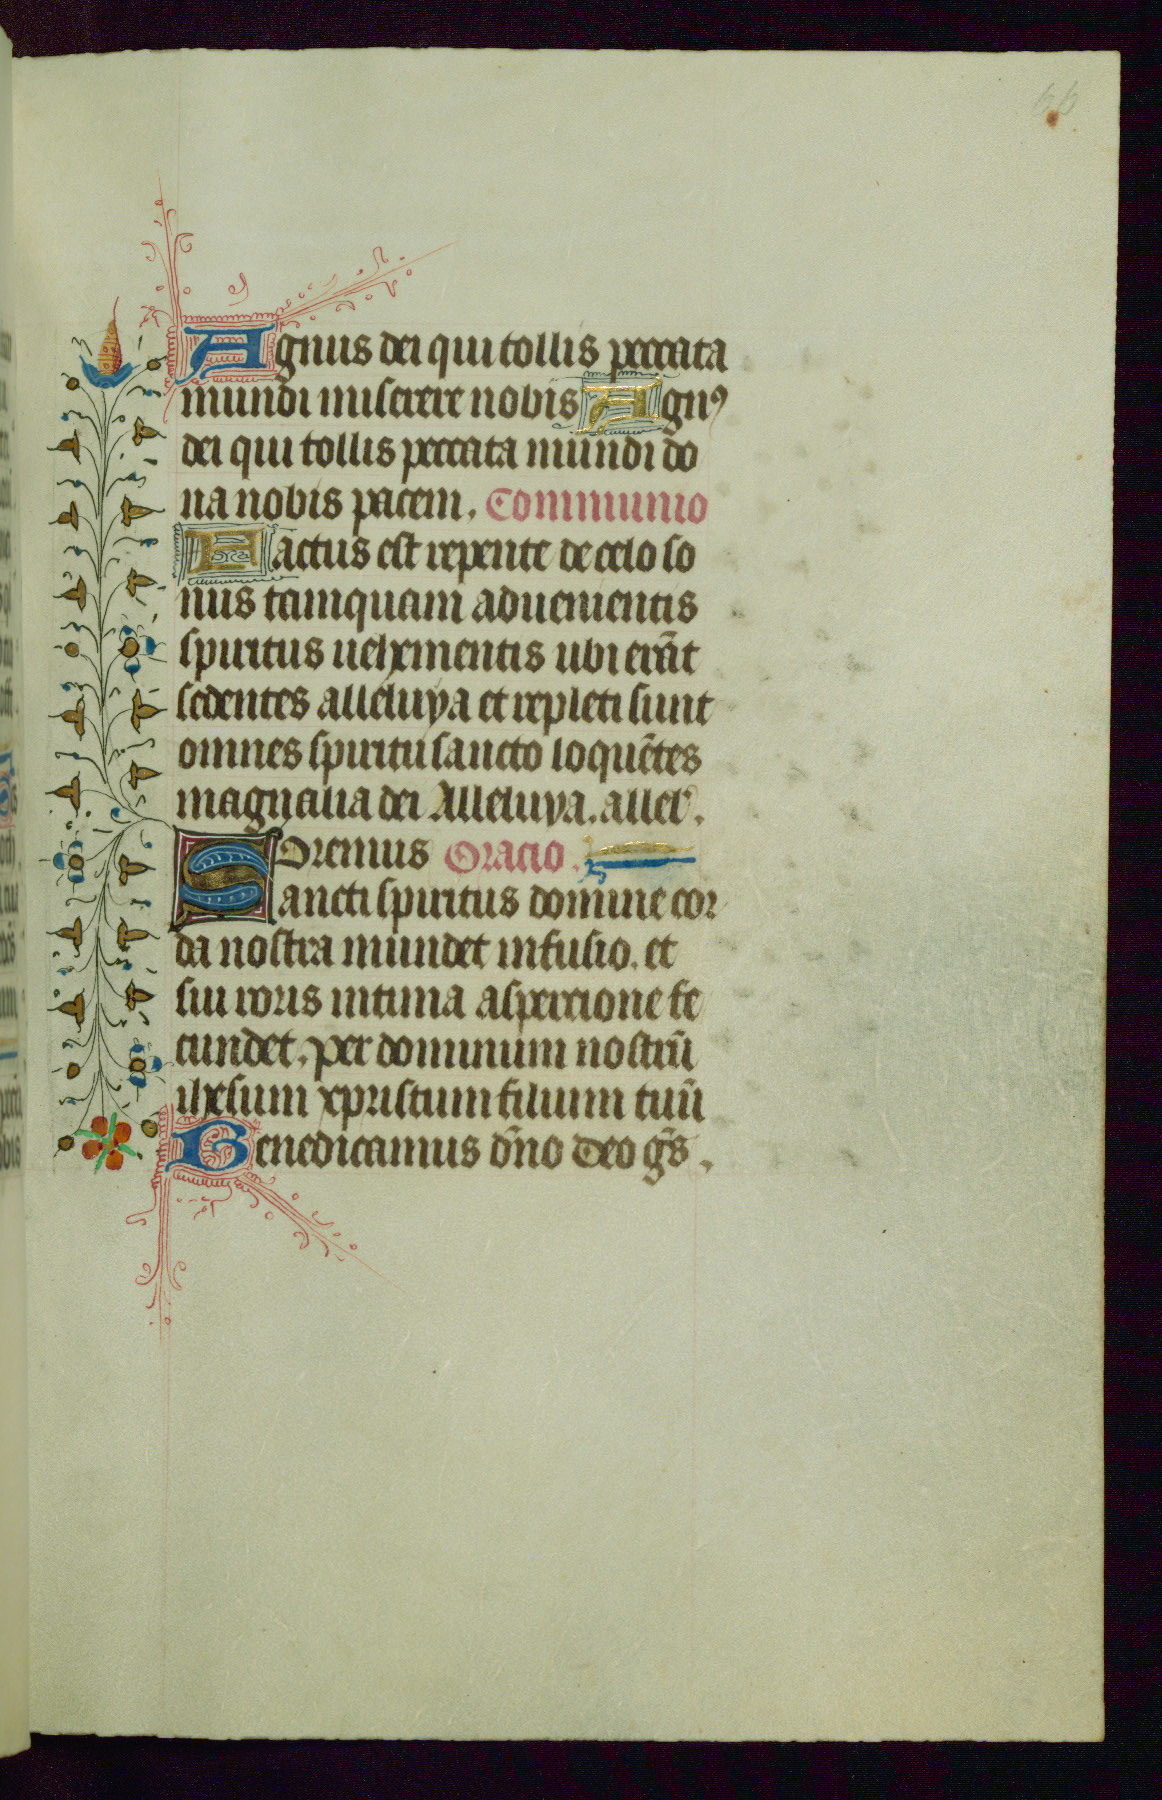 Agnus dei qui tollis peccata
mundi miserere nobis Agnꝰ
dei qui tollis peccata mundi do
na nobis pacem. Communio
Factus est repente de celo so
nus tamquam aduenientis
spiritus uehementis ubi erāt
sedentes alleluya et repleti sunt
omnes spiritu sancto loquētes
magnalia dei Alleluya. allel'.
Oremus Oracio.
Sancti spiritus domine cor
da nostra mundet infusio. et
sui roris intima aspercione fe
cundet. per dominum nostrū
ihesum xpristum filium tuū
Benedicamus dn̄o Deo gr̄s.